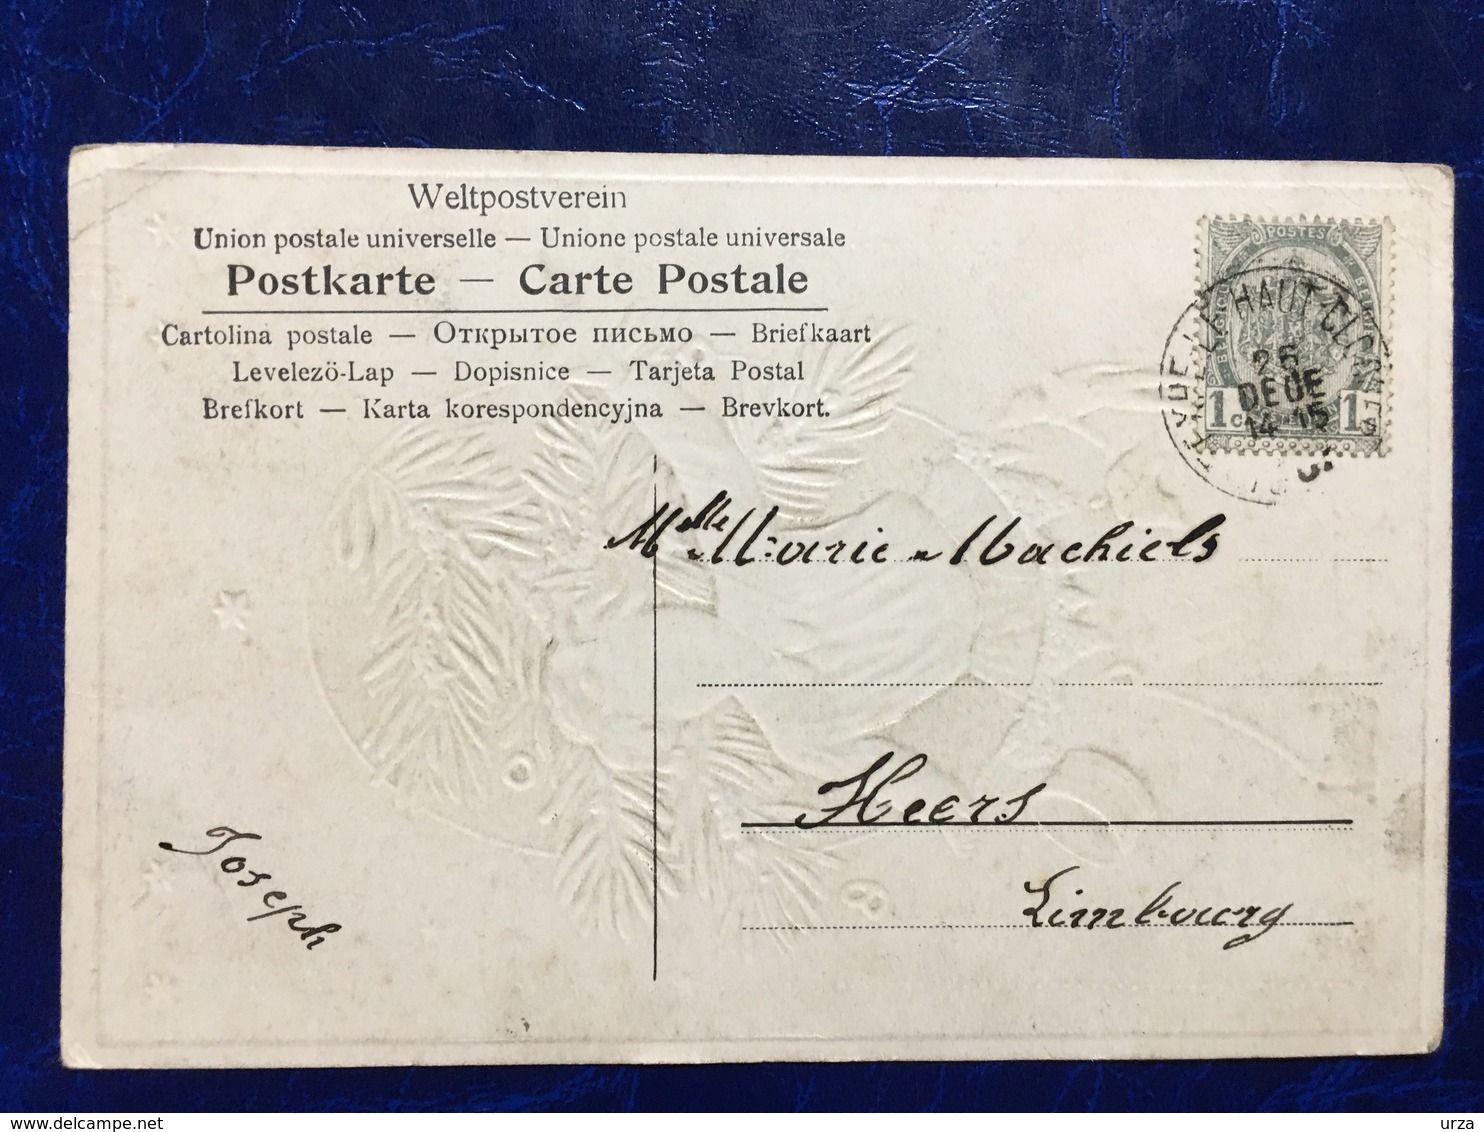 Weltpostverein
Union postale universelle — Unione postale universale
Postkarte — Carte Postale
Cartolina postale — Открытое письмо — Briefkaart
Levelezö-Lap — Dopisnice — Tarjeta Postal
Brefkort — Karta korespondencyjna — Brevkort.
POSTES
HAUT
25
DE
14-15
1 1
Mlle Marie Machiels
Heers
Limbourg
Joseph
delcampe.net
urza